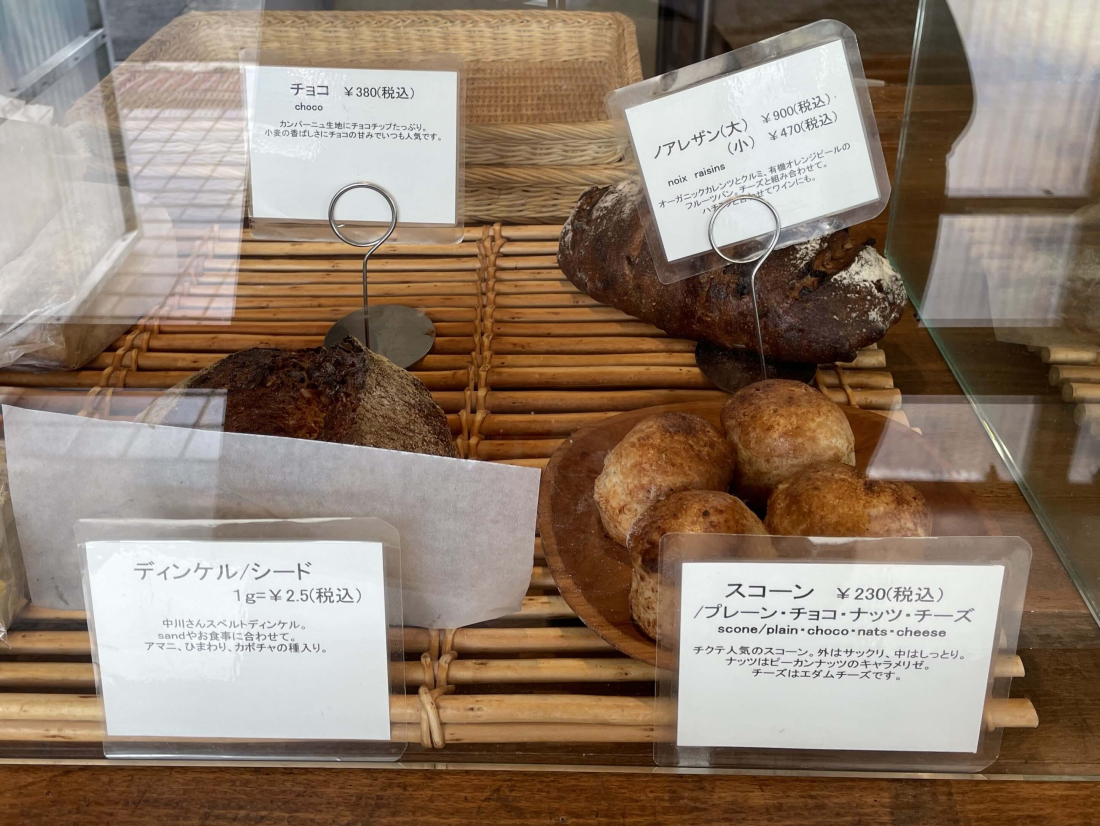 チョコ ￥380(税込)
choco
カンパーニュ生地にチョコチップたっぷり。
小麦の香ばしさにチョコの甘みでいつも人気です。
ノアレザン(大) ￥900(税込)
(小) ￥470(税込)
noix raisins
オーガニックカレンツとクルミ、有機オレンジピールの
フルーツパン。チーズと組み合わせて。
ハチミツと合わせてワインにも。
ディンケル/シード
1g=￥2.5(税込)
中川さんスペルトディンケル。
sandやお食事に合わせて。
アマニ、ひまわり、カボチャの種入り。
スコーン ￥230(税込)
/プレーン・チョコ・ナッツ・チーズ
scone/plain・choco・nats・cheese
チクテ人気のスコーン。外はサックリ、中はしっとり。
ナッツはピーカンナッツのキャラメリゼ。
チーズはエダムチーズです。